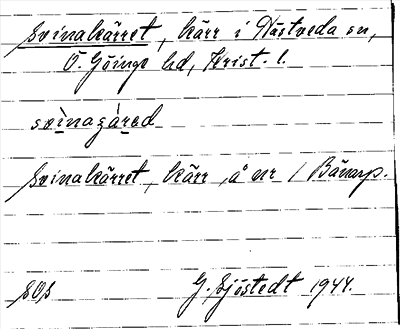 Svinakärret, kärr i Nästveda sn,
Ö. Göinge hd, Krist. l.
svinazäred
Svinakärret, kärr, å nr 1 Bänarp.
SOS G. Sjöstedt 1944.